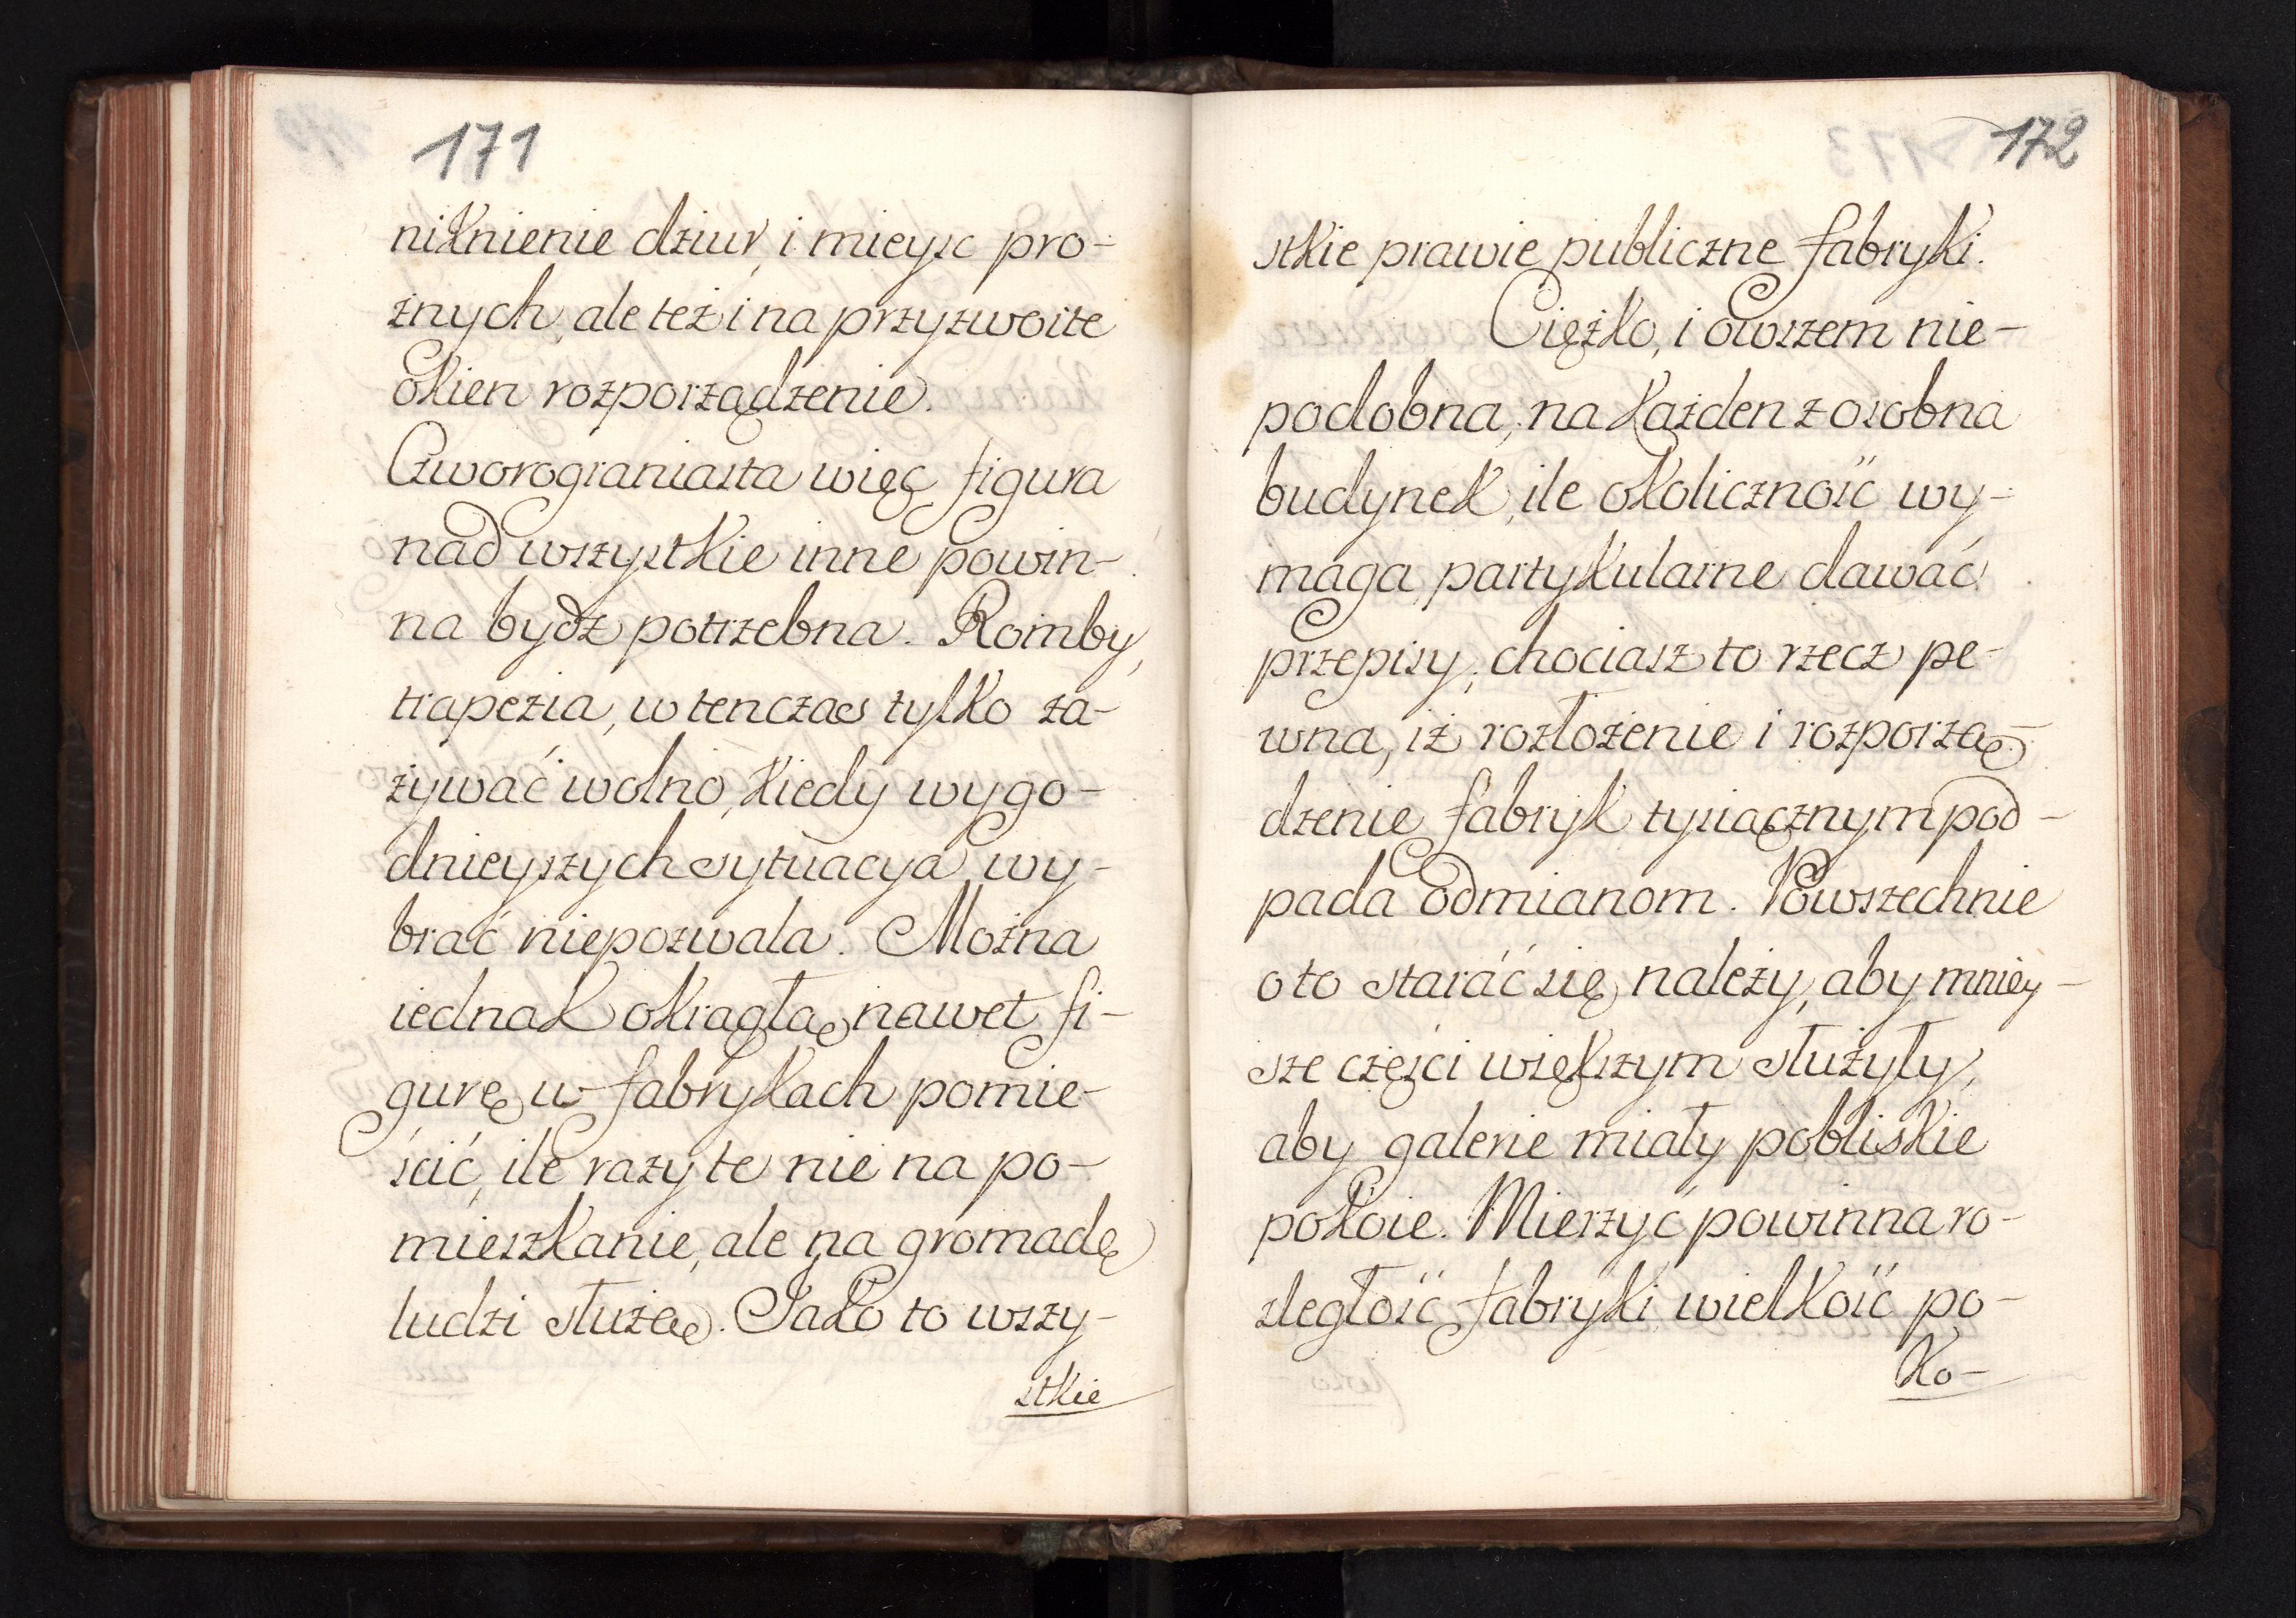 171
niknienie dziur, i mieysc pro-
żnych, ale też i na przyzwoite
okien rozporządzenie.
Czworograniasta więc figura
nad wszystkie inne powin-
na bydź potrzebna. Romby,
trapezia, w tenczas tylko za-
żywać wolno, kiedy wygo-
dnieyszych sytuacya wy-
brać niepozwala. Można
iednak okrągłą nawet fi-
gurę w fabrykach pomie-
ścić, ile razy te nie na po-
mieszkanie, ale na gromadę
ludzi służą. Jako to wszy-
stkie
172
stkie prawie publiczne fabryki.
Ciężko, i owszem nie-
podobna, na każden z osobna
budynek, ile okoliczność wy-
maga, partykularne dawać
przepisy; chociasz to rzecz pe-
wna, iż rozłożenie i rozporzą-
dzenie fabryk tysiącznym pod-
pada odmianom. Powszechnie
o to starać się należy, aby mniey-
sze części większym służyły,
aby galerie miały pobliskie
pokoie. Mierzyć powinna ro-
zległość fabryki wielkość po-
ko-